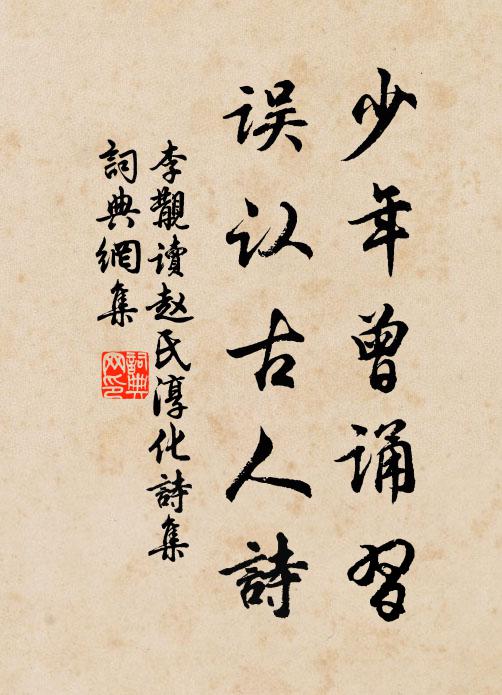 少年曾诵習
误认古人詩
李觀读赵氏淳化詩集
詞典網集
詞典网印